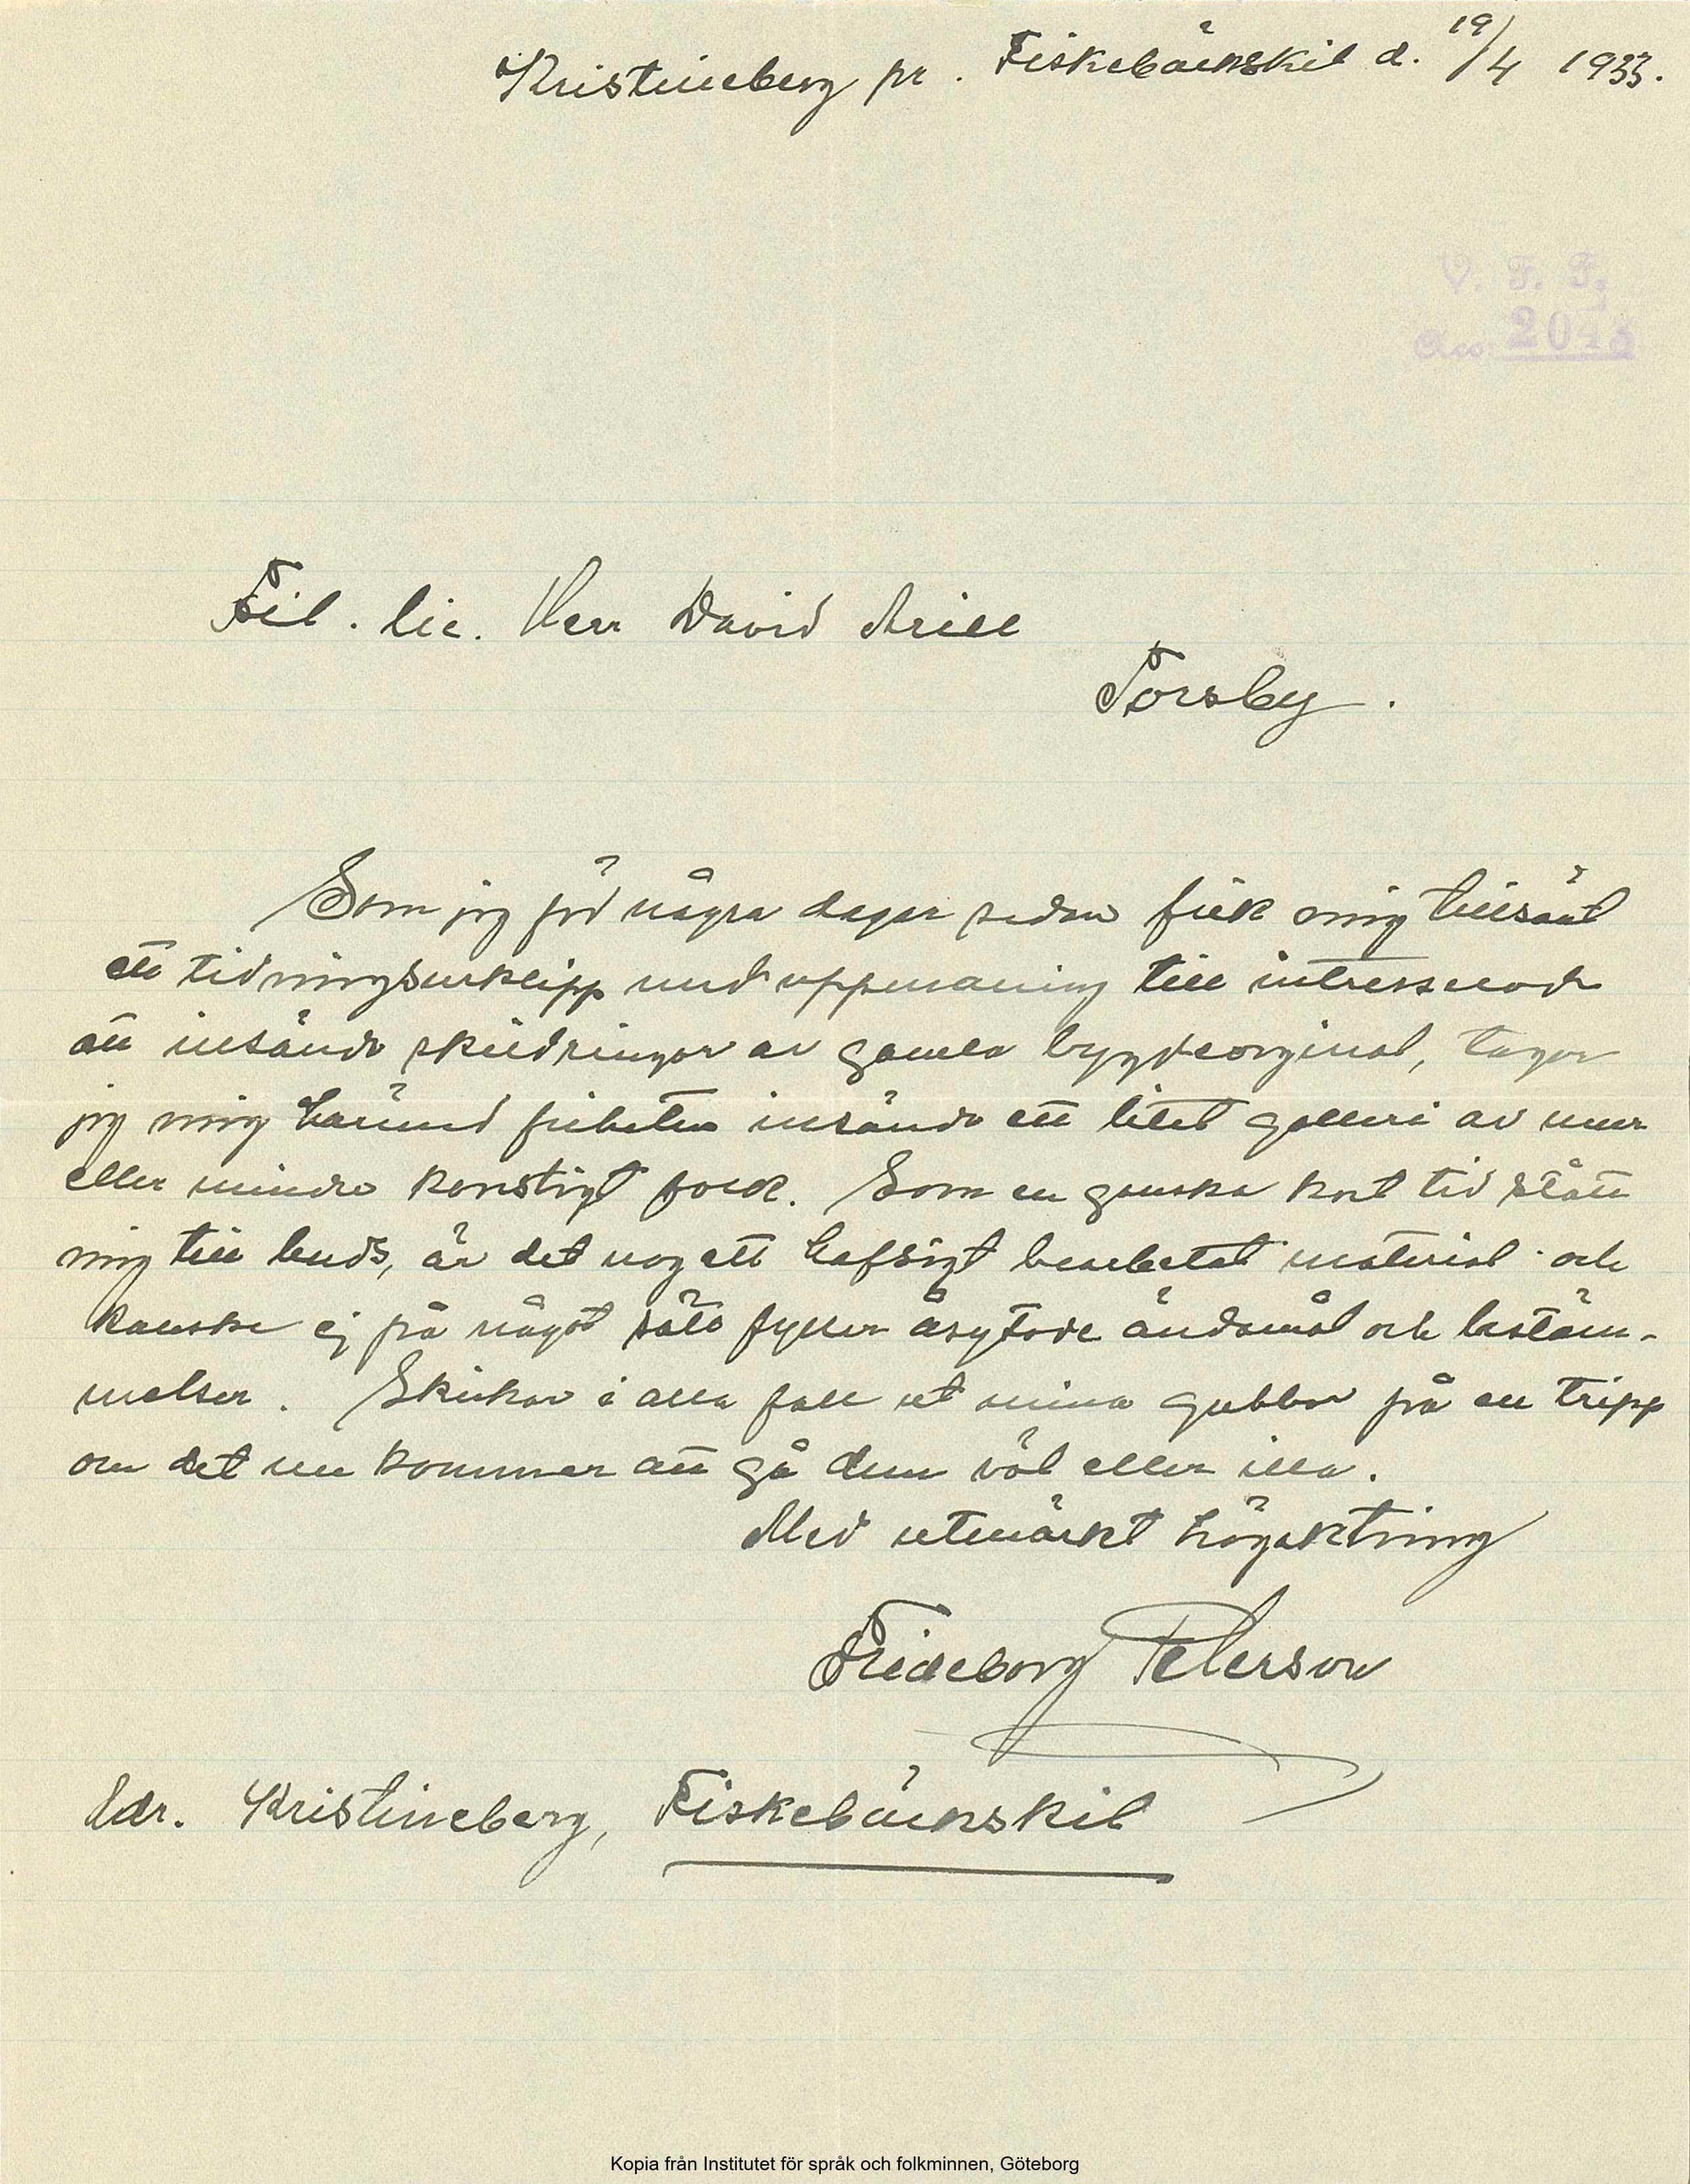 Kristineberg pr. Fiskebäckskil d. 19/4 1933.
V. F. F.
Acc. 2043
Fil. lic. Herr David Arill
Torsby.
Som jag för några dagar sedan fick mig tillsänt
ett tidningsurklipp med uppmaning till intresserade
att insända skildringar av gamla bygdeorginal, tager
jag mig härmed friheten insända ett litet galleri av mer
eller mindre konstigt folk. Som en ganska kort tid stått
mig till buds, är det nog ett hafsigt bearbetat material och
kanske ej på något sätt fyller åsyftade ändamål och bestäm-
melser. Skickar i alla fall ut mina gubbar på en tripp
om det nu kommer att gå dem väl eller illa.
Med utmärkt högaktning
Frideborg Peterson
Adr. Kristineberg, Fiskebäckskil
Kopia från Institutet för språk och folkminnen, Göteborg